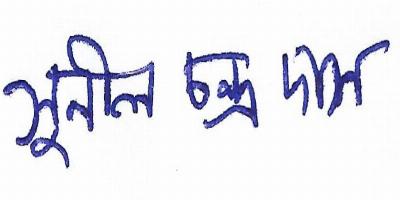 সুনীল চন্দ্র দাস